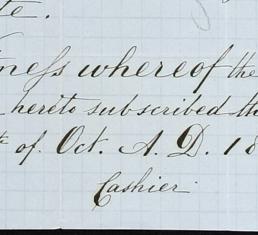 te.
tness whereof the
hereto subscribed the
of Oct. A. D. 18
Cashier